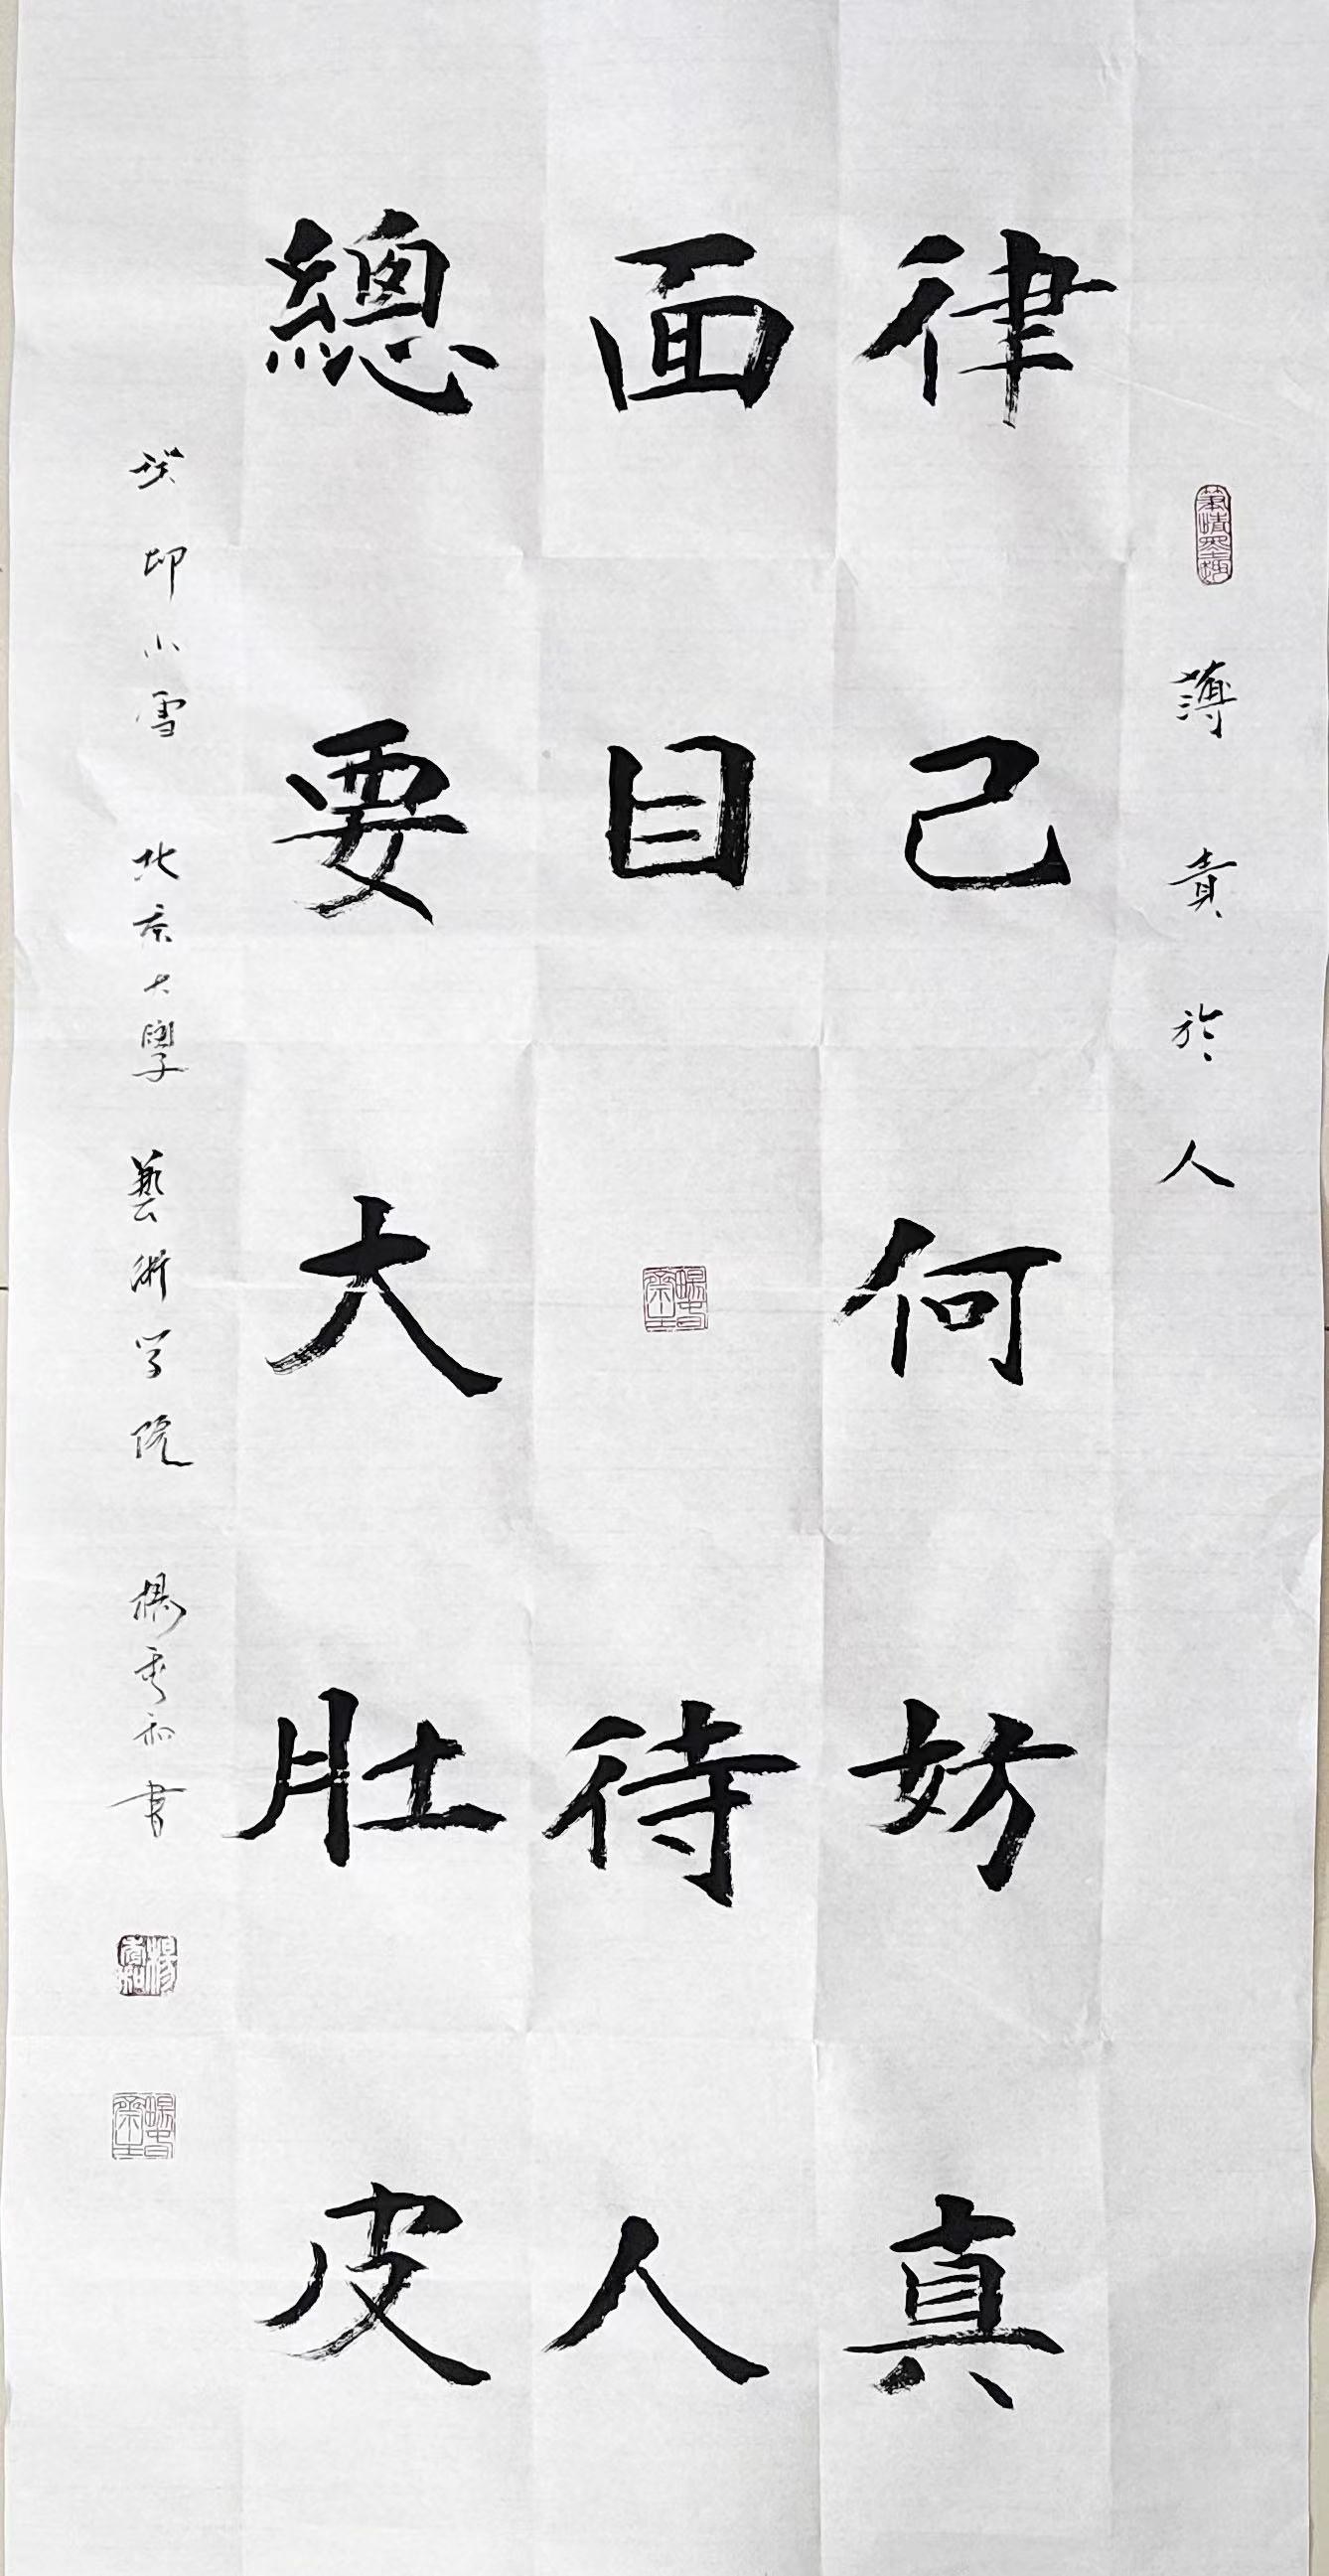 薄責於人
律己何妨真
面目待人
總要大肚皮
癸卯小雪 北京大學 藝術学院 楊秀和書